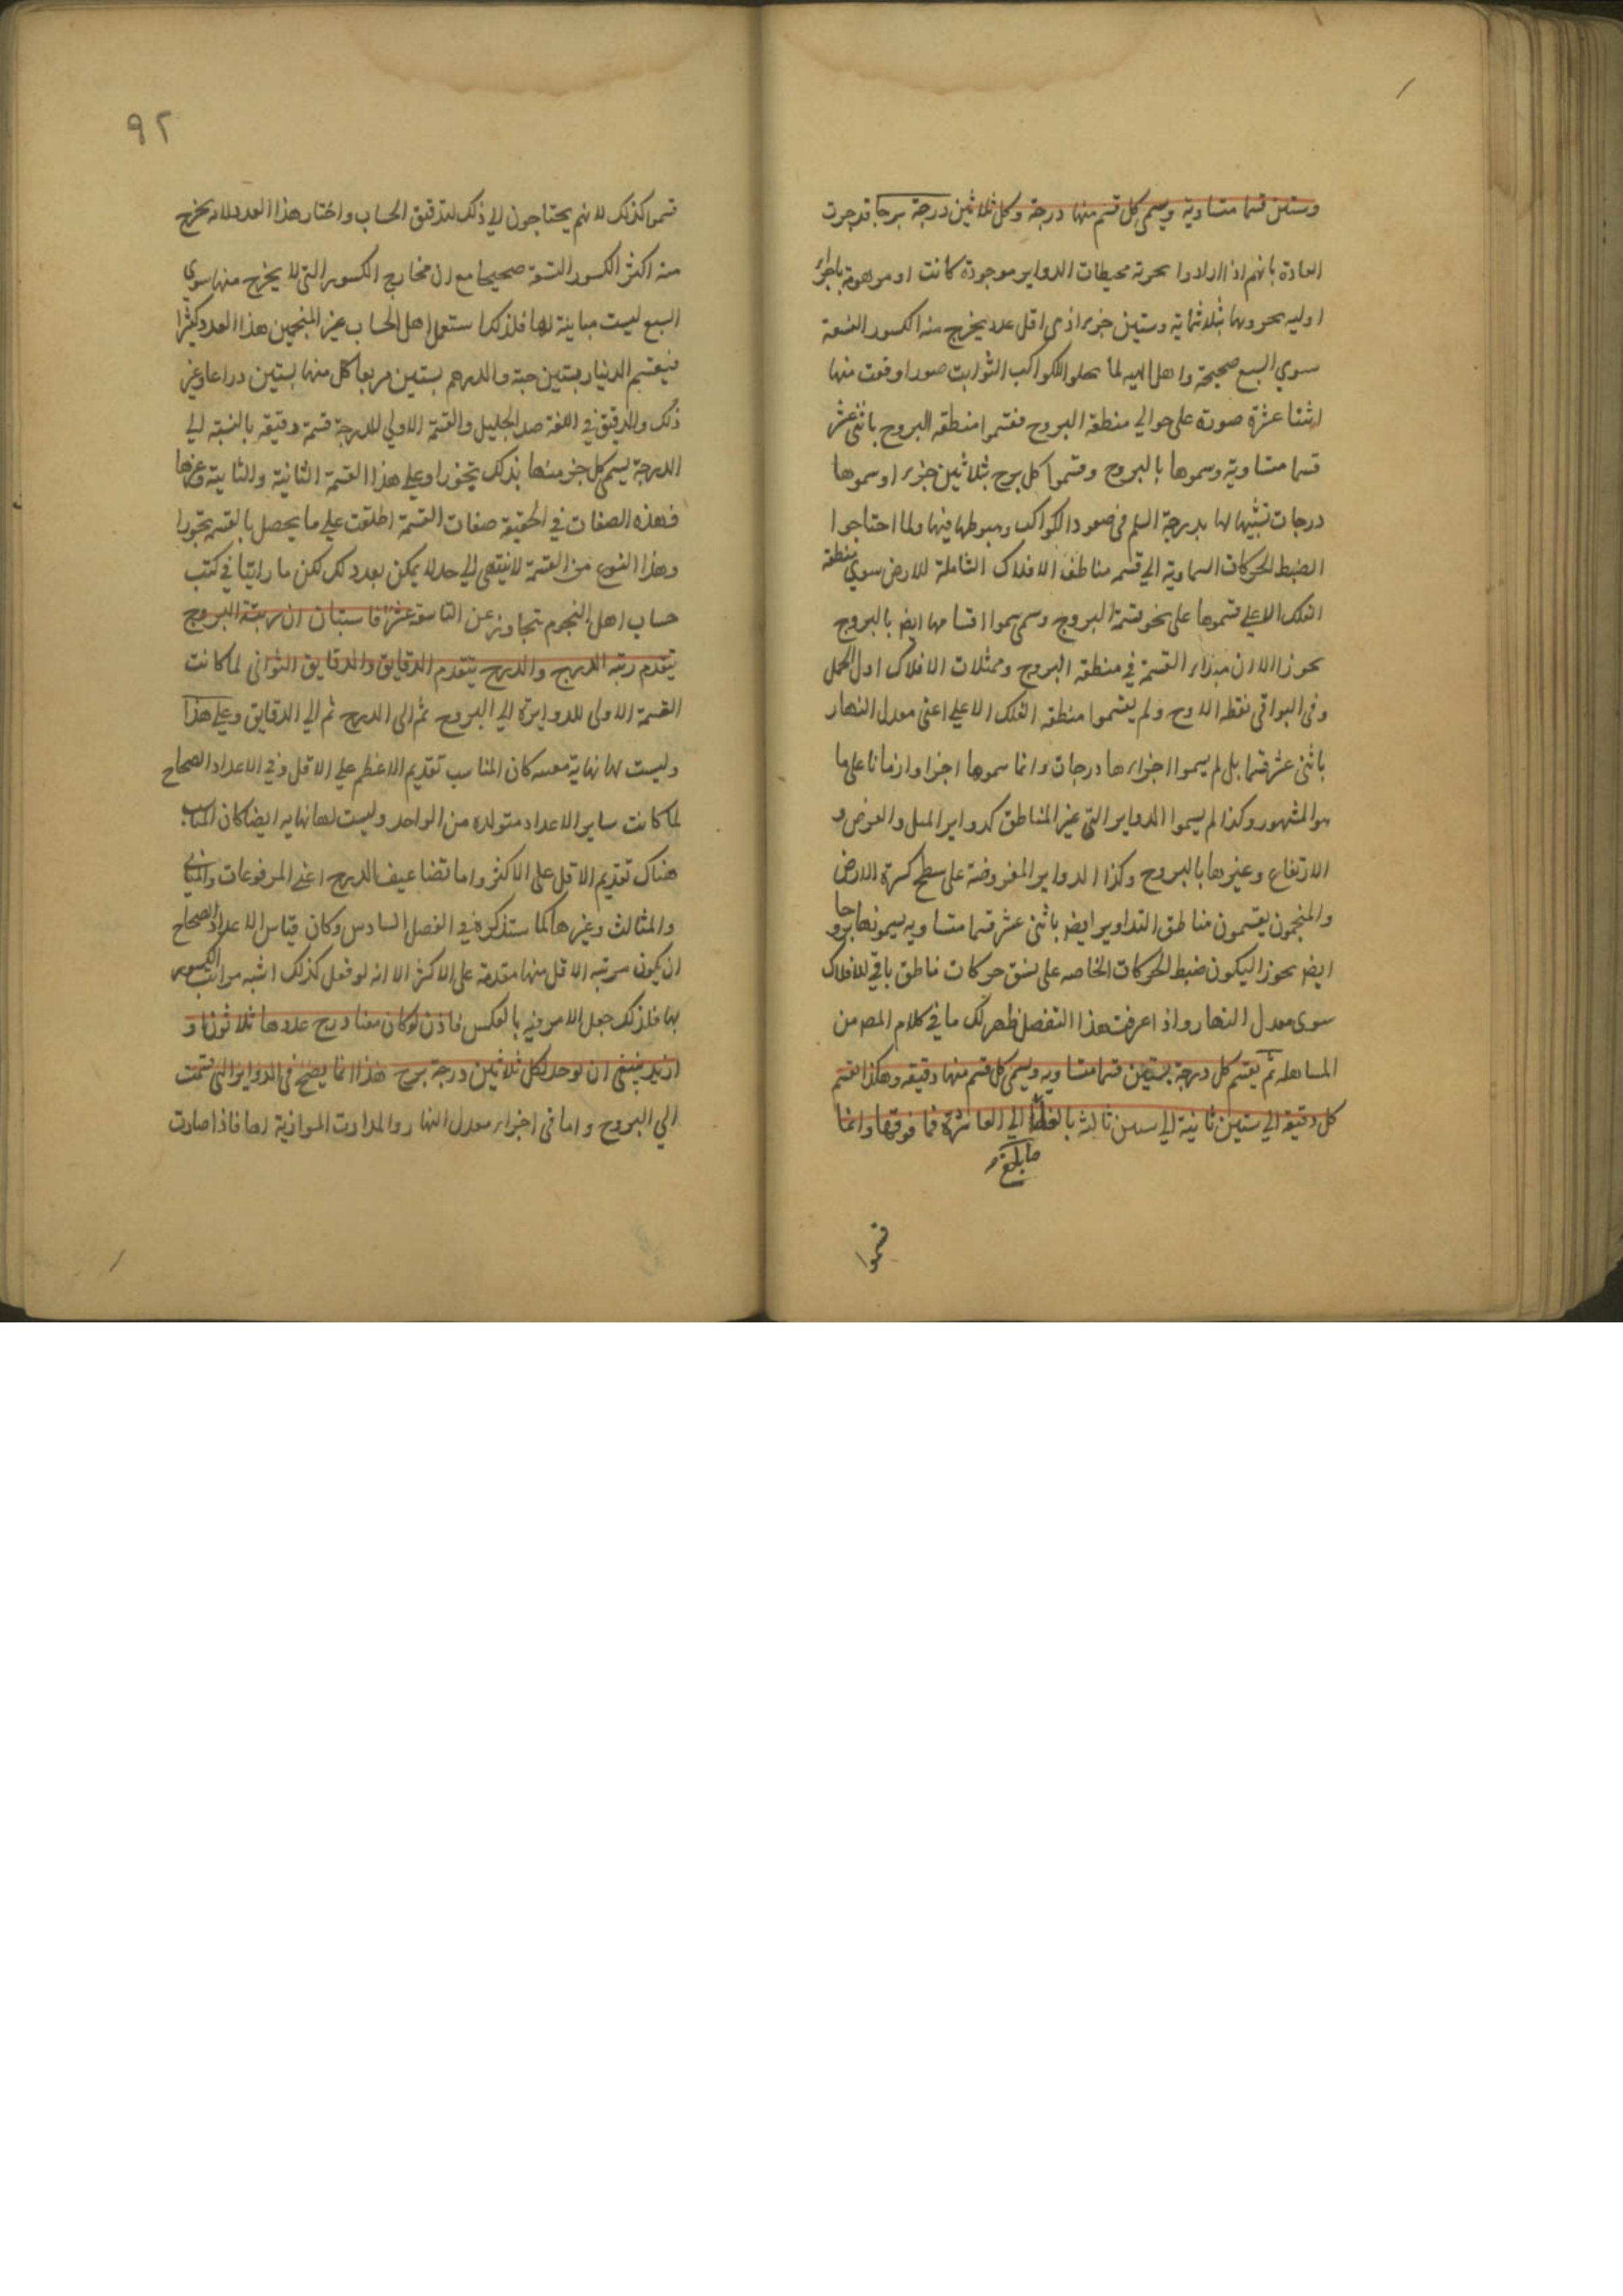 وستين قسما متساوية ويسمى كل قسم منها درجة وكل ثلاثين درجة برجا قد جرت
العادة بانهم اذا ارادوا تجزية محيطات الدواير موجودة كانت او موهومة باجزاء
اولية يجزونها بثلاثماية وستين جزءا اذ هي اقل عدد يخرج منه الكسور التسعة
سوي السبع صحيحة واهل الهيه لما الكواكب الثوابت صورا وقعت منها
اثنتا عشرة صورة على حوالي منطقة البروج فقسموا منطقة البروج باثني عشر
قسما متساوية وسموها بالبروج وقسموا كل برج بثلاثين جزءا وسموها
درجات تشبيها لها بدرجة السلم في صعود الكواكب وهبوطها فيها ولما احتاجوا
لضبط الحركات السماوية الي قسمة مناطق الافلاك الشاملة للارض سوي منطقة
الفلك الاعلي قسموها على نحو قسمة البروج وسموا اقسامها ايض بالبروج
تجوزا الا ان مبداء القسمة في منطقة البروج وممثلات الافلاك اول الحمل
وفي البواقي نقطه الاوج ولم يقسموا منطقه الفلك الاعلي اعني معدل النهار
باثني عشر قسما بل لم يسموا اجزاءها درجات وانما سموها اجزا وازمانا على ما
هو المشهور وكذا لم يسموا الدواير التي غير المناطق كدواير الميل والعرض و
الارتفاع وغيرها بالبروج وكذا الدواير المفروضة على سطح كرة الارض
والمنجمون يقسمون مناطق التداوير ايض باثني عشر قسما متساويه يسمونها بروجا
ايض تجوزا ليكون ضبط الحركات الخاصه على نسق حركات مناطق باقي الافلاك
سوى معدل النهار واذا عرفت هذا التفصل ظهر لك ما في كلام المص من
المساهله ثم يقسم كل درجة بستين قسما متساويه ويسمى كل قسم منها دقيقه وهكذا يقسم
كل دقيقة الي ستين ثانية الي ستين ثالثة بالغا الي العاشرة فما فوقها وانما
ما بلغ
قسموا
٩٢
قسموا كذلك لانهم يحتاجون الي ذلك لتدقيق الحساب واختار هذا العدد لانه يخرج
منه اكثر الكسور التسعة صحيحا مع ان مخارج الكسور التي لا يخرج منها سوي
السبع ليست مباينة لها فلذلك استعمل اهل الحساب غير المنجمين هذا العدد كثيرا
فيقسم الدينار بستين حبة والدرهم بستين مربعا كل منها بستين ذراعا وغير
ذلك والدقيق في اللغة ضد الجليل والقسمة الاولي للدرجة قسمة دقيقه بالنسبة الي
الدرجة يسمى كل جزء منها بذلك تجوزا وعلي هذا القسمة الثانية والثالثة وغيرها
فهذه الصفات في الحقيقة صفات القسمة اطلقت علي ما يحصل بالقسمة تجوزا
وهذا النوع من القسمة لا ينتهي الي حد لا يمكن بعده ذلك لكن ما راينا في كتب
حساب اهل النجوم يتجاوز عن التاسعة عشرة فاستبان ان رتبة البروج
يتقدم رتبة الدرج والدرج يتقدم الدقايق والدقايق الثواني لما كانت
القسمة الاولى للدوايرة الي البروج ثم الى الدرج ثم الي الدقايق وعلي هذا
وليست لها نهاية معينة كان المناسب تقديم الاعظم علي الاقل وفي الاعداد الصحاح
لما كانت ساير الاعداد متولده من الواحد وليست لها نهايه ايضا كان المناسب
هناك تقديم الاقل على الاكثر واما تضاعيف الدرج اعني المرفوعات والمثاني
والمثالث وغيرها كما ستذكره في الفصل السادس وكان قياس الاعداد الصحاح
ان يكون مرتبه الاقل منها مقدمة على الاكثر الا انه لو فعل كذلك اشبه مراتب الكسور
بها فلذلك جعل الامر فيه بالعكس فاذن لو كان معنا درج عددها ثلاثون او
ازيد ينبغي ان يوخذ لكل ثلاثين درجة برج هذا انما يصح في الدواير التي قسمت
الي البروج واما في اجزاء معدل النهار والمدارات الموازية لها فاذا صارت